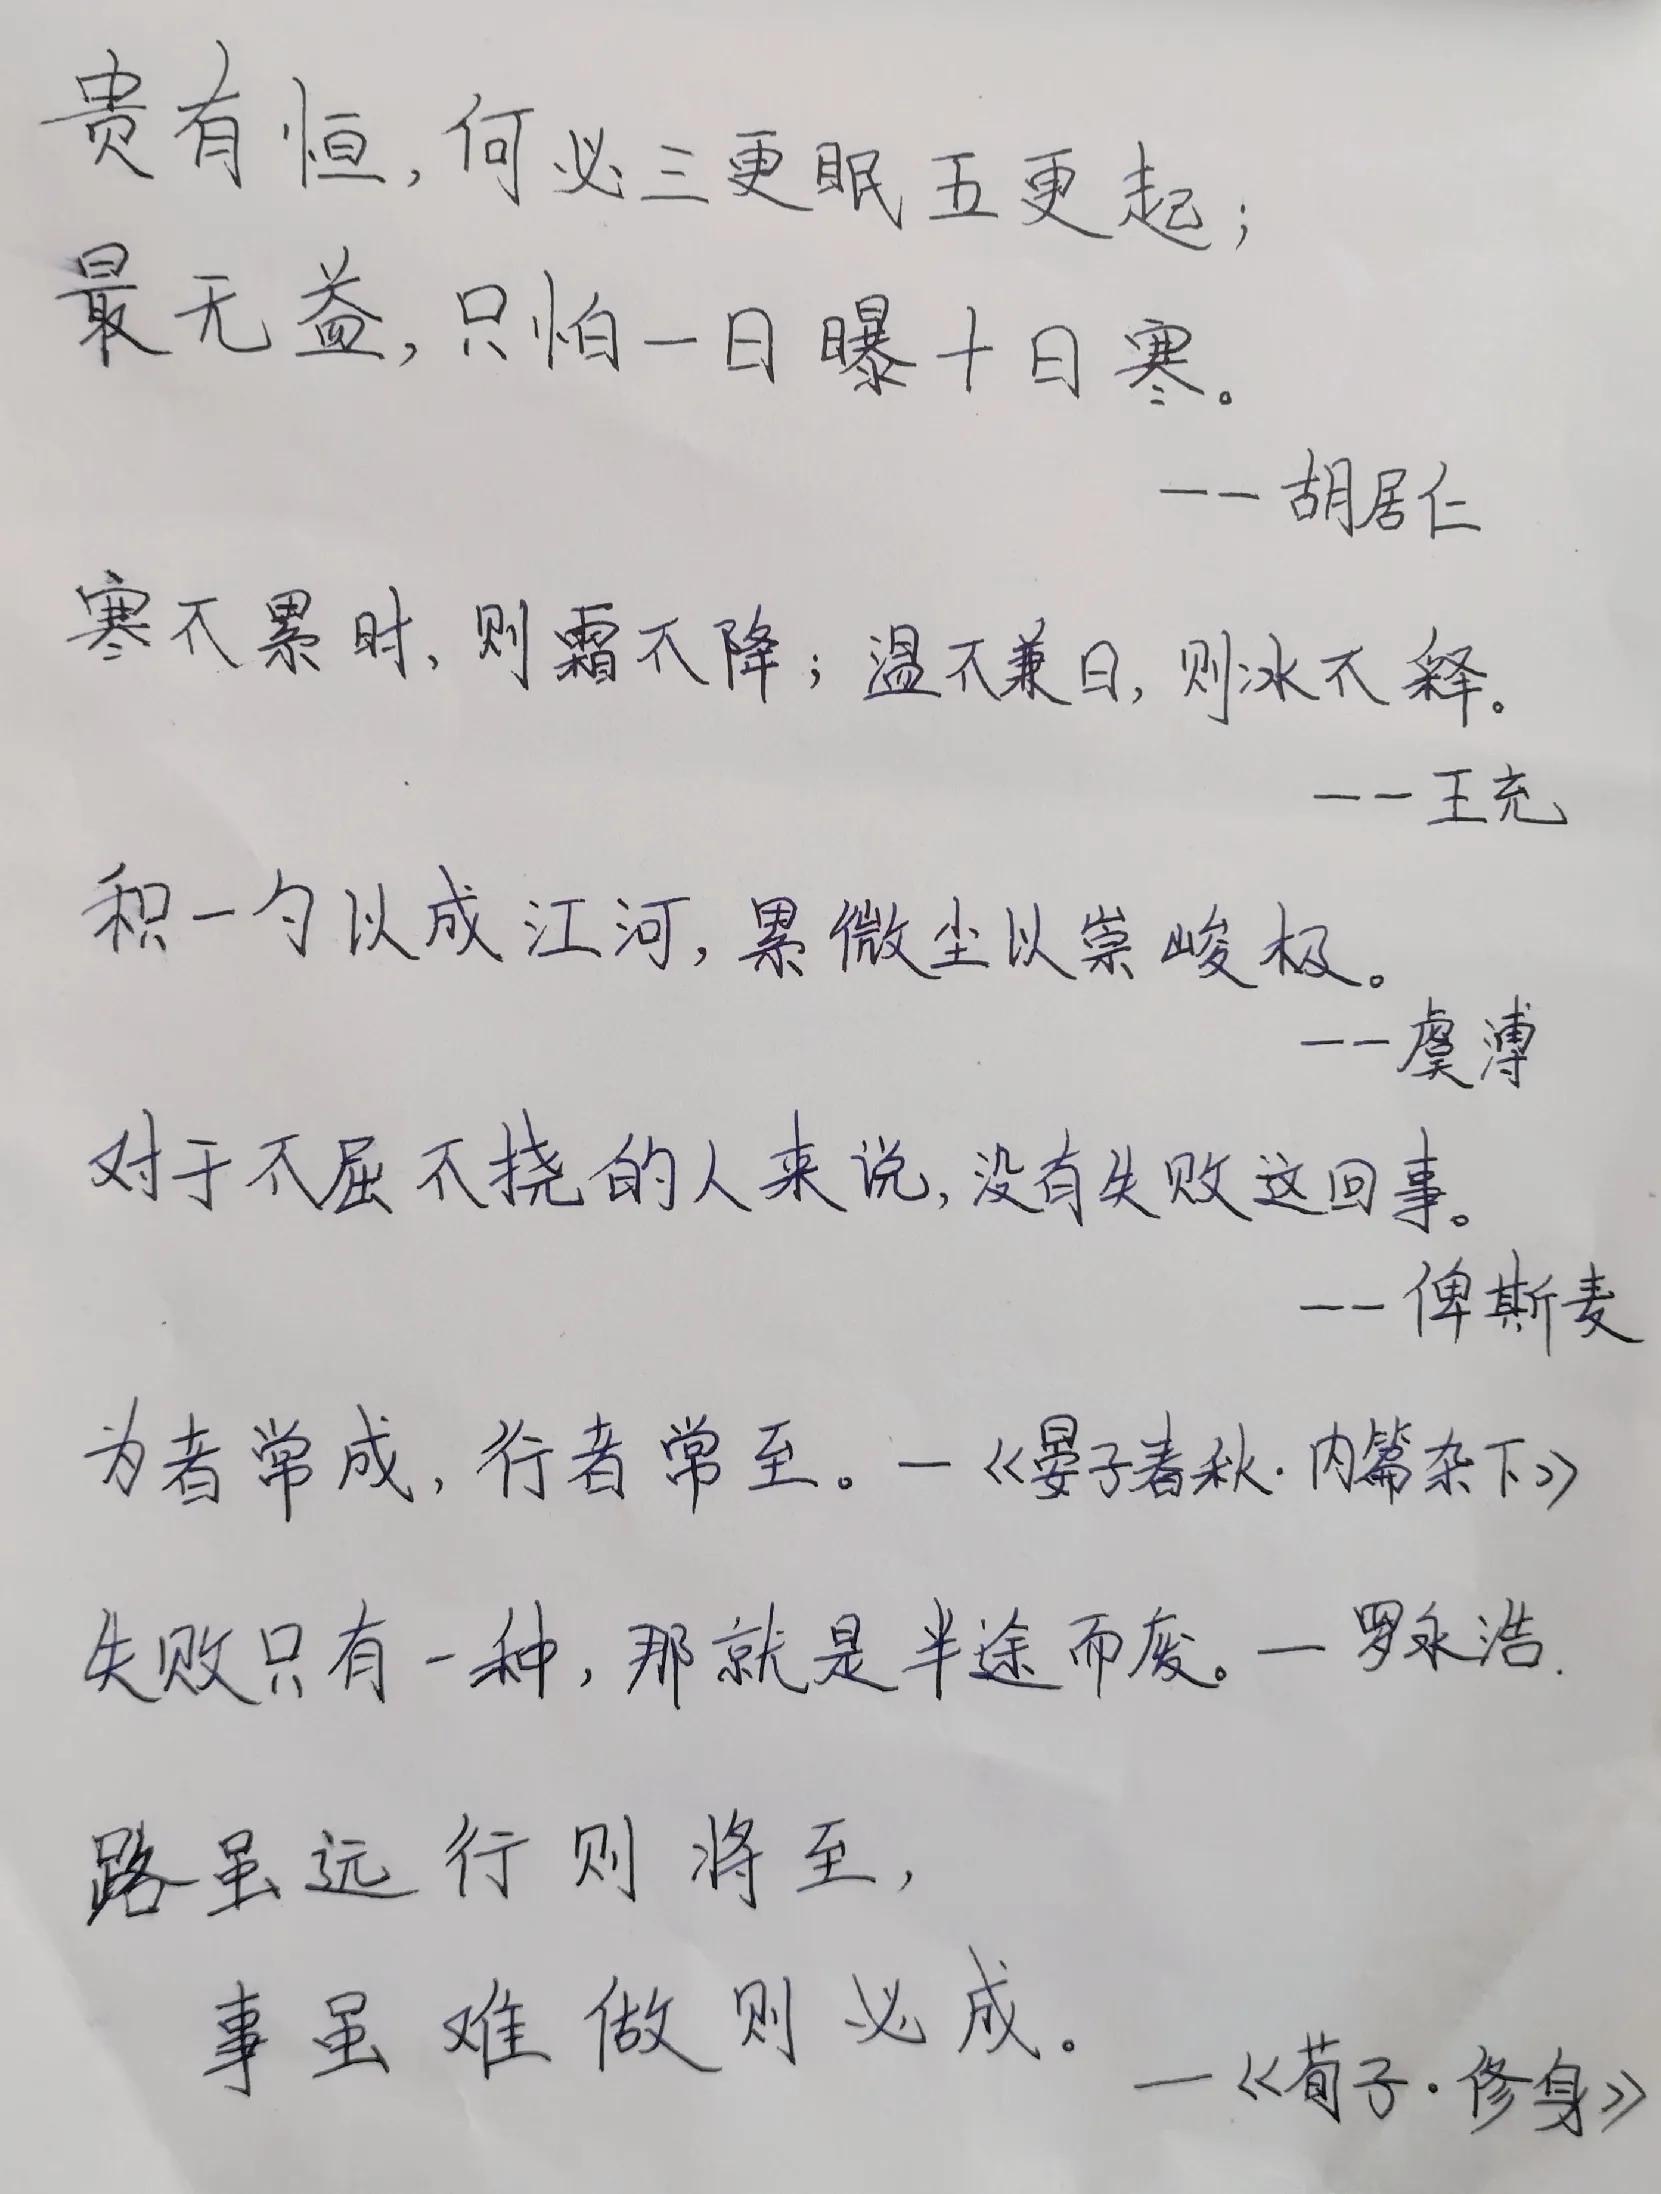 贵有恒，何必三更眠五更起；
最无益，只怕一日曝十日寒。
--胡居仁
寒不累时，则霜不降；温不兼日，则冰不释。
--王充
积一勺以成江河，累微尘以崇峻极。
--虞溥
对于不屈不挠的人来说，没有失败这回事。
--俾斯麦
为者常成，行者常至。—《晏子春秋·内篇杂下》
失败只有一种，那就是半途而废。—罗永浩.
路虽远行则将至，
事虽难做则必成。
—《荀子·修身》